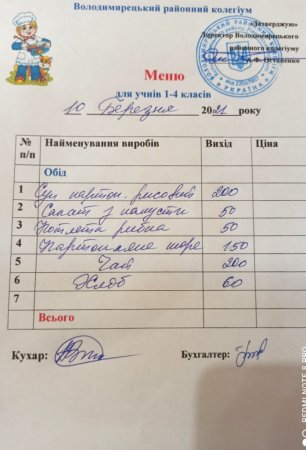 Володимирецький районний колегіум
«Затверджую»
Директор Володимирецького
районного колегіуму
Остапенко
Меню
для учнів 1-4 класів
10 Березня 2021 року
№ п/п Найменування виробів Вихід Ціна
Обід
1 Суп картоп. рисовий 200
2 Салат з капусти 50
3 Котлета рибна 50
4 Картопляне пюре 150
5 Чай 200
6 Хліб 60
7
Всього
Кухар: Бухгалтер:
REDMI NOTE 8 PRO